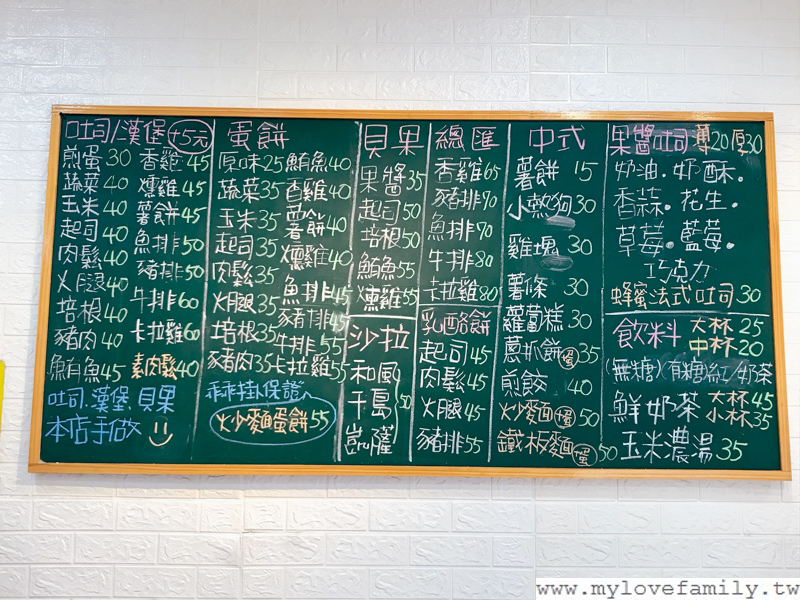 吐司/漢堡 +5元
煎蛋30 香雞45
蔬菜40 燻雞45
玉米40 薯餅45
起司40 魚排50
肉鬆40 豬排50
火腿40 牛排60
培根40 卡拉雞60
豬肉40 素肉鬆40
鮪魚45
吐司.漢堡.貝果
本店手做
蛋餅
原味25 鮪魚40
蔬菜35 香雞40
玉米35 薯餅40
起司35 燻雞40
肉鬆35 魚排45
火腿35 豬排45
培根35 牛排55
豬肉35 卡拉雞55
乖乖掛保證
火炒麵蛋餅55
貝果
果醬35
起司50
培根50
鮪魚55
燻雞55
沙拉
和風
千島 50
凱薩
總匯
香雞65
豬排70
魚排70
牛排80
卡拉雞80
乳酪餅
起司45
肉鬆45
火腿45
豬排55
中式
薯餅 15
小熱狗30
雞塊 30
薯條 30
蘿蔔糕30
蔥抓餅(蛋)35
煎餃 40
炒麵(蛋)50
鐵板麵(蛋)50
果醬吐司 薄20厚30
奶油.奶酥.
香蒜.花生.
草莓.藍莓.
巧克力
蜂蜜法式吐司30
飲料 大杯25
中杯20
(無糖)(有糖)紅/奶茶
鮮奶茶 大杯45
小杯35
玉米濃湯35
www.mylovefamily.tw